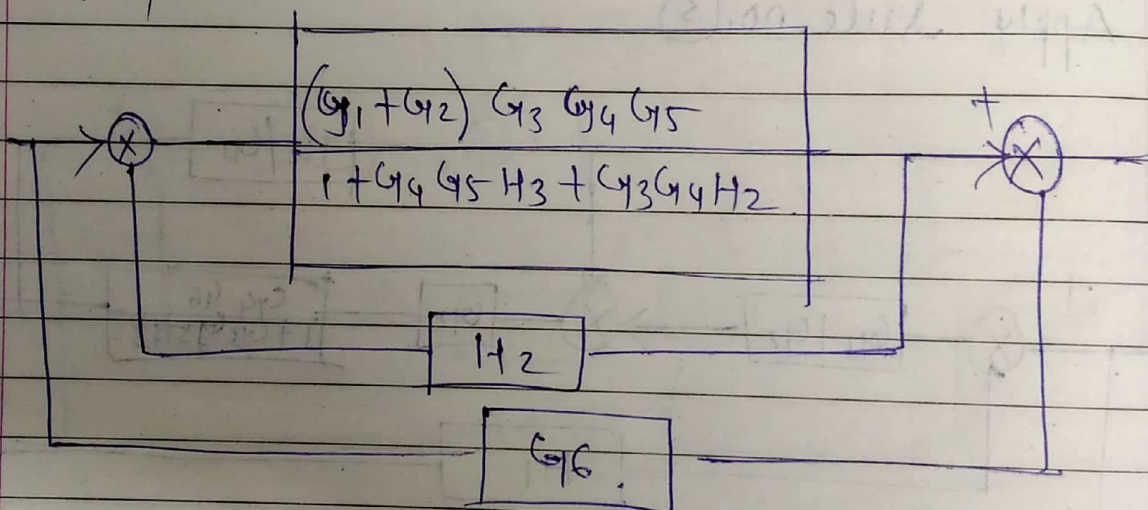 +
(G1+G2) G3 G4 G5
1+G4 G5 H3 + G3G4H2
H2
G6.